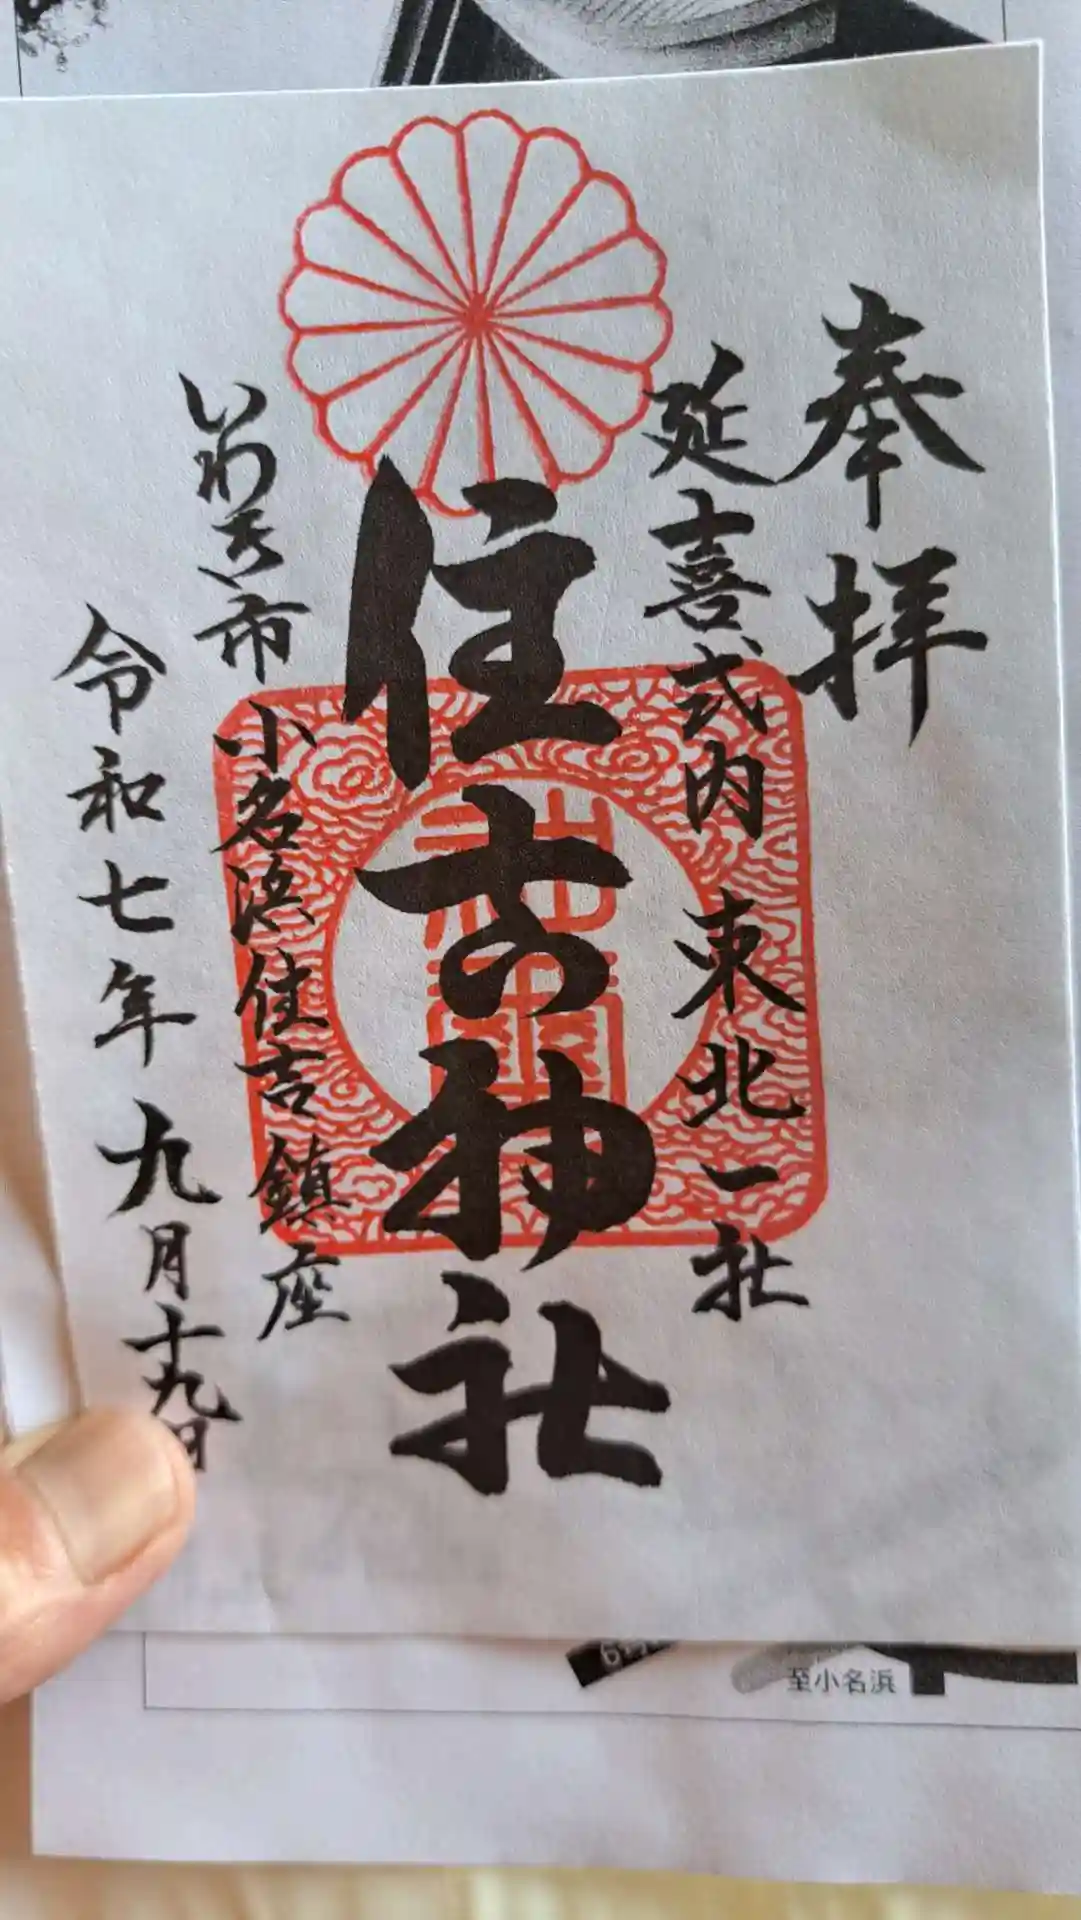 奉拝
延喜式内 東北一社
住吉神社
いわき市
小名浜住吉鎮座
令和七年九月十九日
至小名浜